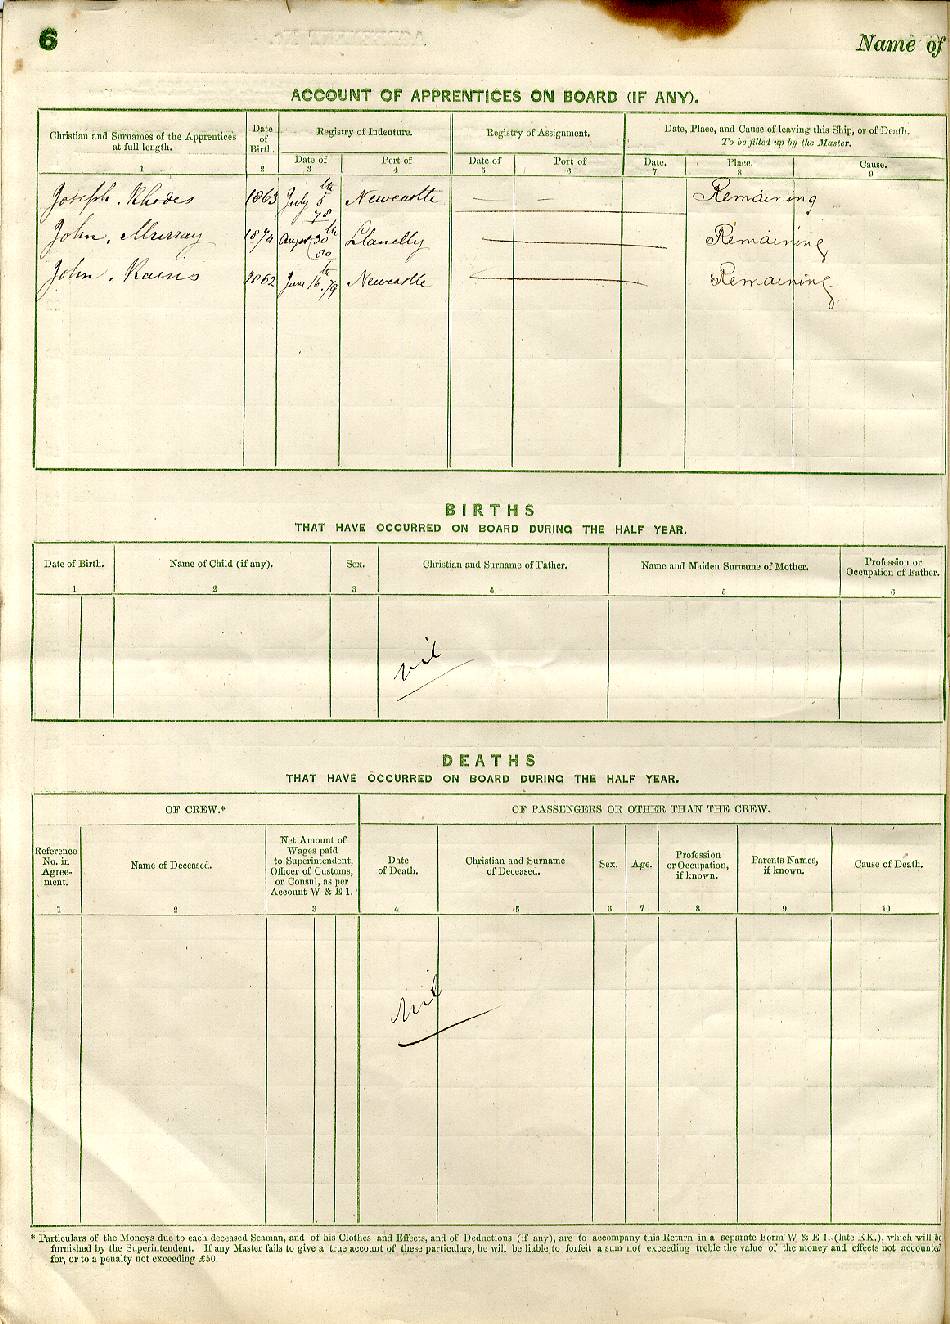 6
Name of
ACCOUNT OF APPRENTICES ON BOARD (IF ANY).
Christian and Surnames of the Apprentices at full length.
Date of Birth.
Registry of Indenture.
Registry of Assignment.
Date, Place, and Cause of leaving this Ship, or of Death.
To be filled up by the Master.
Date of
Port of
Date of
Port of
Date.
Place.
Cause.
1 2 3 4 5 6 7 8 9
Joseph Rhodes 1863 July 8th 78 Newcastle — — Remaining
John Murray 1874 August 30th 80 Llanelly — Remaining
John 1862 June 16th 79 Newcastle — Remaining
BIRTHS
THAT HAVE OCCURRED ON BOARD DURING THE HALF YEAR.
Date of Birth.
Name of Child (if any).
Sex.
Christian and Surname of Father.
Name and Maiden Surname of Mother.
Profession or Occupation of Father.
1 2 3 4 5 6
nil
DEATHS
THAT HAVE OCCURRED ON BOARD DURING THE HALF YEAR.
OF CREW.*
OF PASSENGERS OR OTHER THAN THE CREW.
Reference No. in Agree-ment.
Name of Deceased.
Net Amount of Wages paid to Superintendent, Officer of Customs, or Consul, as per Account W & E 1.
Date of Death.
Christian and Surname of Deceased.
Sex.
Age.
Profession or Occupation, if known.
Parents Names, if known.
Cause of Death.
1 2 3 4 5 6 7 8 9 10
nil
* Particulars of the Moneys due to each deceased Seaman, and of his Clothes and Effects, and of Deductions (if any), are to accompany this Return in a separate Form W & E 1. (late KK.), which will be
furnished by the Superintendent. If any Master fails to give a true account of these particulars, he will be liable to forfeit a sum not exceeding treble the value of the money and effects not accounted
for, or to a penalty not exceeding £50.